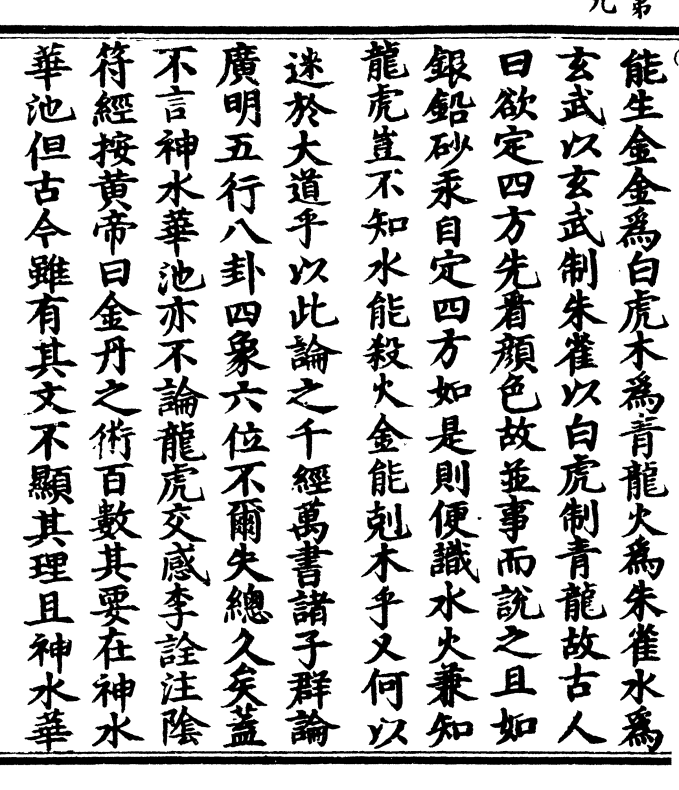 能生金金爲白虎木爲青龍火爲朱雀水爲
玄武以玄武制朱雀以白虎制青龍故古人
曰欲定四方先看顔色故並事而說之且如
銀鉛砂汞自定四方如是則便識水火兼知
龍虎豈不知水能殺火金能剋木乎又何以
迷於大道乎以此論之千經萬書諸子群論
廣明五行八卦四象六位不爾失總久矣蓋
不言神水華池亦不論龍虎交感李詮注陰
符經按黃帝曰金丹之術百數其要在神水
華池但古今雖有其文不顯其理且神水華